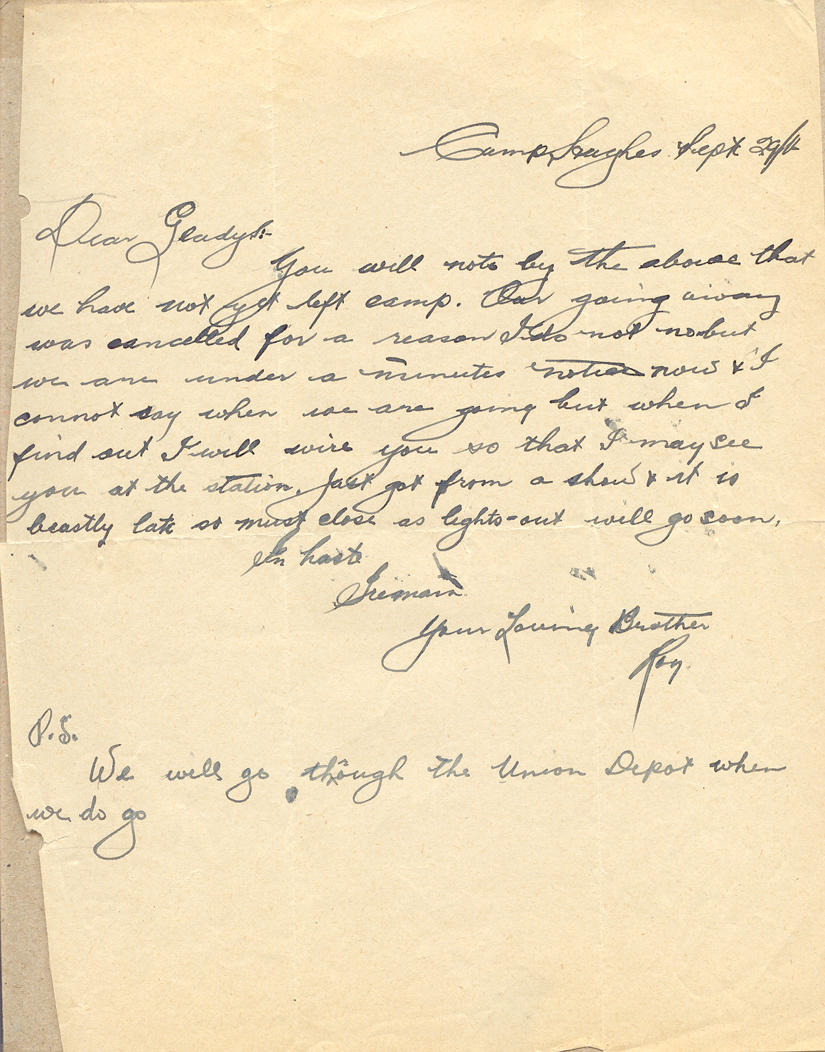 Camp Hughes Sept 29th
Dear Gladys:-
You will note by the above that
we have not yet left camp. Our going away
was cancelled for a reason I do not no but
we are under a minutes notice now & I
cannot say when we are going but when I
find out I will wire you so that I may see
you at the station. Just got from a show & it is
beastly late so must close as lights-out will go soon.
In haste
I remain
Your Loving Brother
Roy.
P.S.
We will go though the Union Depot when
we do go